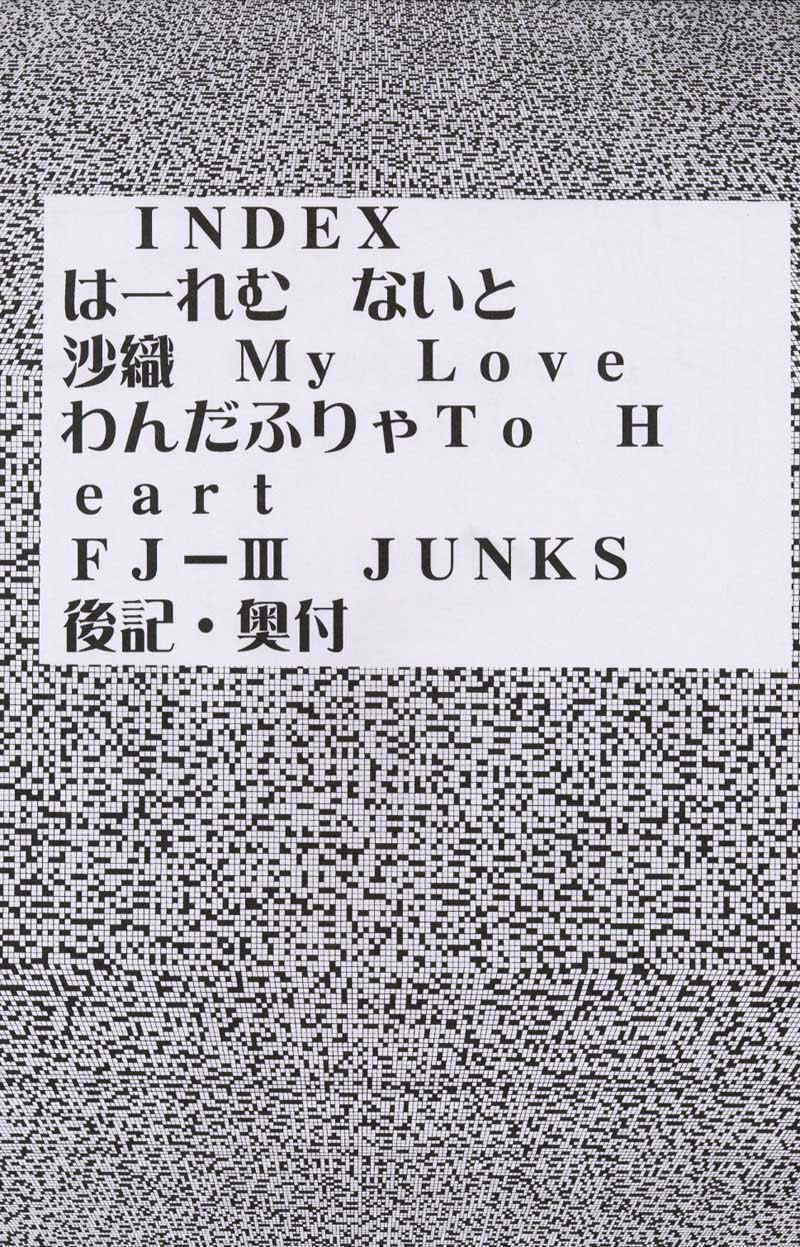 ＩＮＤＥＸ
はーれむ　ないと
沙織　Ｍｙ　Ｌｏｖｅ
わんだふりゃＴｏ　Ｈ
ｅａｒｔ
ＦＪ－Ⅲ　ＪＵＮＫＳ
後記・奥付